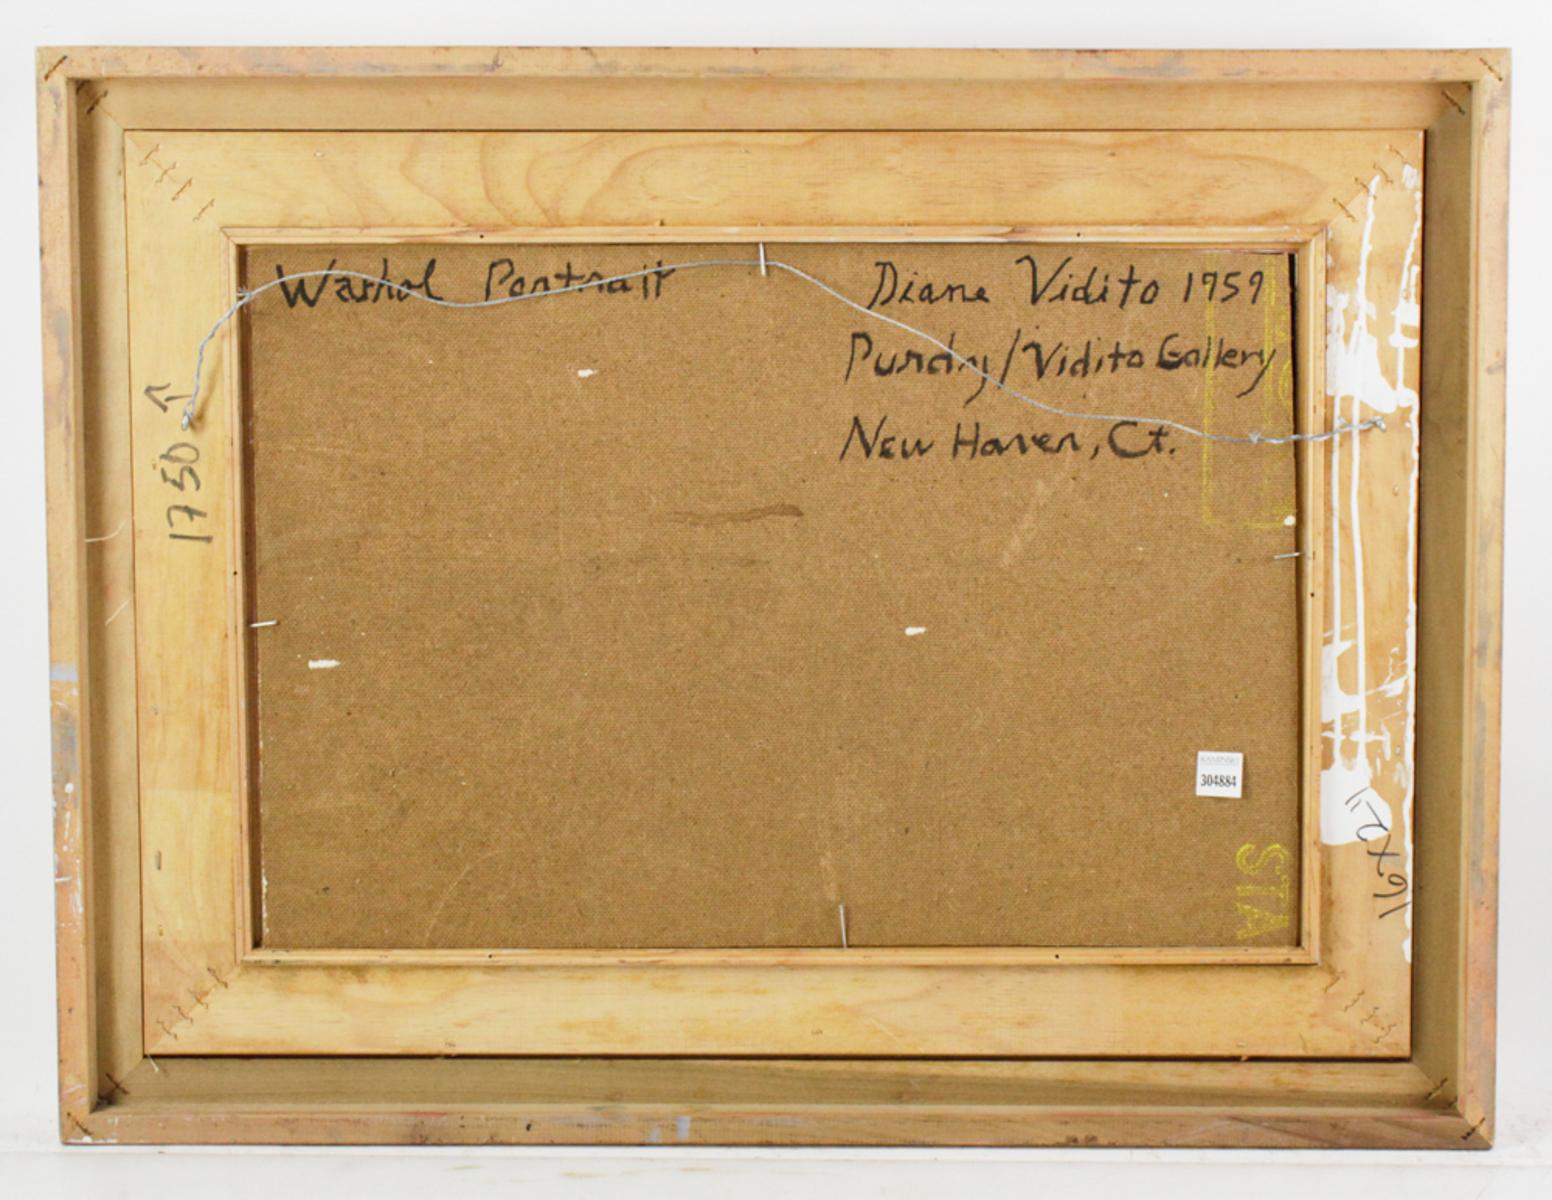 Warhol Portrait
Diane Vidito 1959
Purdy/Vidito Gallery
New Haven, Ct.
1750
KAMINSKI
304884
STA